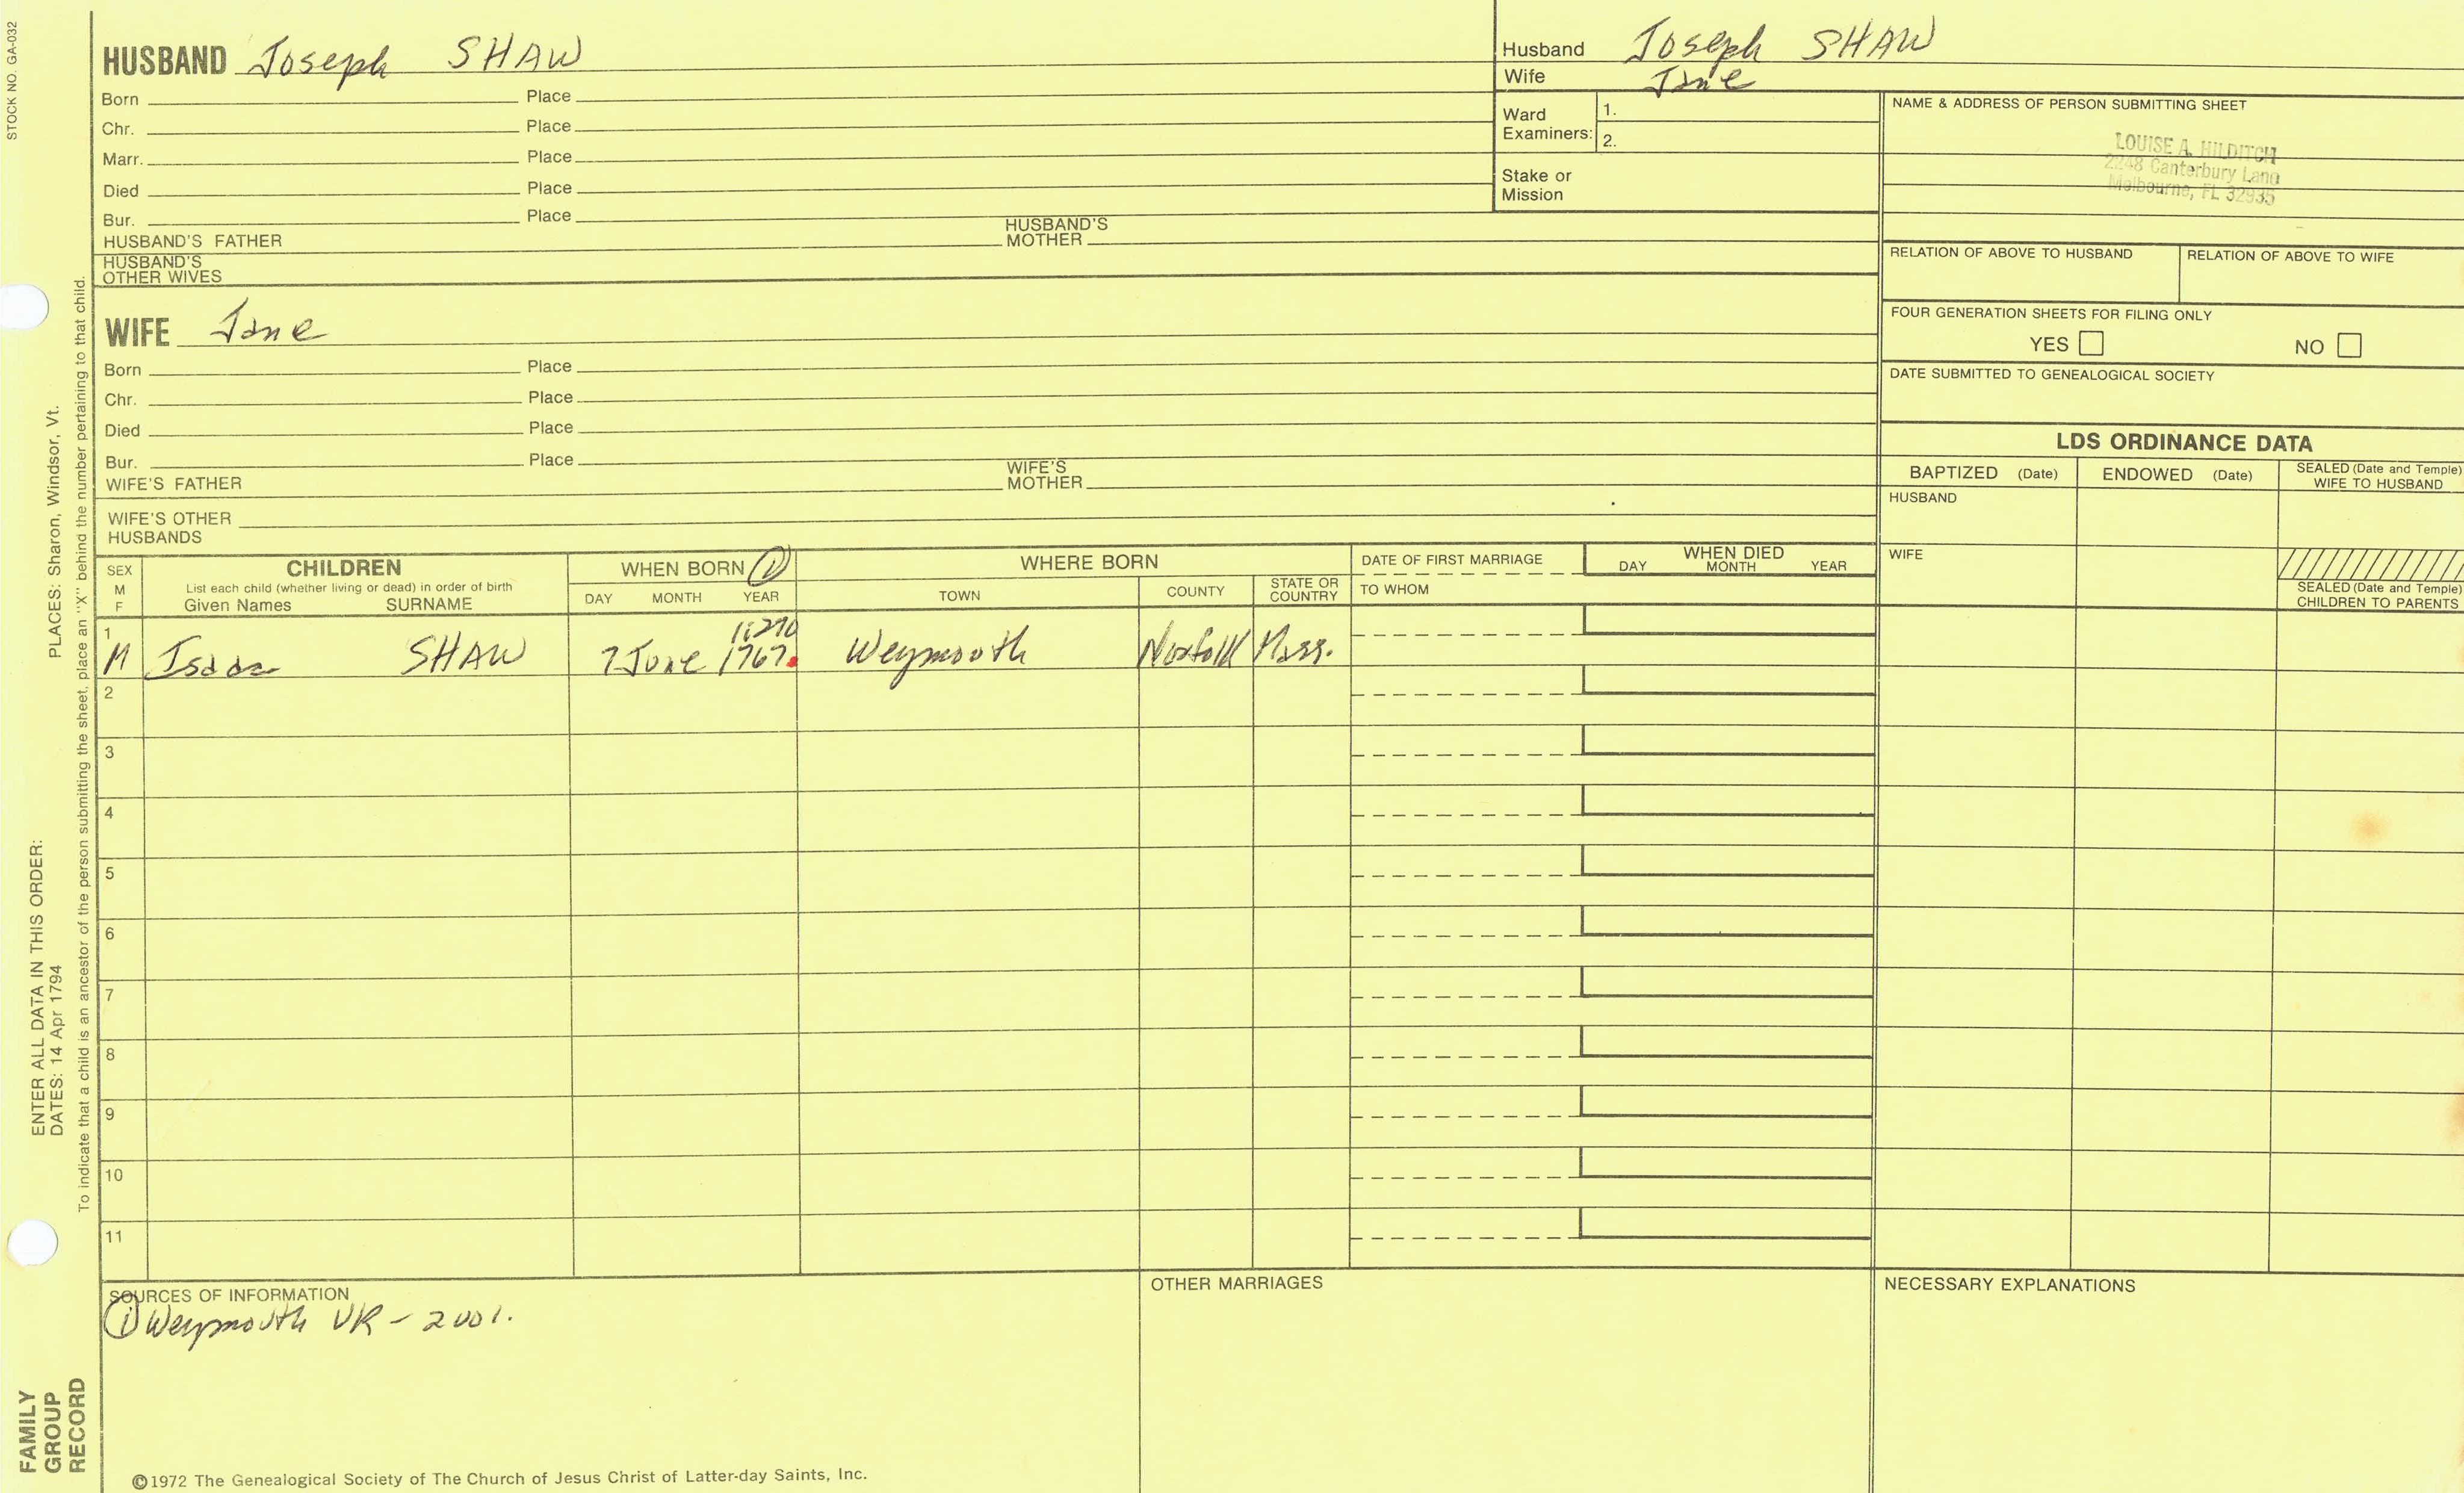 STOCK NO. GA-032
HUSBAND Joseph SHAW
Born Place
Chr. Place
Marr. Place
Died Place
Bur. Place
HUSBAND'S FATHER HUSBAND'S MOTHER
HUSBAND'S OTHER WIVES
WIFE Jane
Born Place
Chr. Place
Died Place
Bur. Place
WIFE'S FATHER WIFE'S MOTHER
WIFE'S OTHER HUSBANDS
Husband Joseph SHAW
Wife Jane
Ward Examiners: 1.
2.
Stake or Mission
NAME & ADDRESS OF PERSON SUBMITTING SHEET
LOUISE A. HILDITCH
2248 Canterbury Lane
Melbourne, FL 32935
RELATION OF ABOVE TO HUSBAND RELATION OF ABOVE TO WIFE
FOUR GENERATION SHEETS FOR FILING ONLY
YES NO
DATE SUBMITTED TO GENEALOGICAL SOCIETY
LDS ORDINANCE DATA
BAPTIZED (Date) ENDOWED (Date) SEALED (Date and Temple) WIFE TO HUSBAND
HUSBAND
WIFE
SEALED (Date and Temple) CHILDREN TO PARENTS
SEX M F
CHILDREN
List each child (whether living or dead) in order of birth
Given Names SURNAME
WHEN BORN ①
DAY MONTH YEAR
WHERE BORN
TOWN COUNTY STATE OR COUNTRY
DATE OF FIRST MARRIAGE
TO WHOM
WHEN DIED
DAY MONTH YEAR
1:270
1 M Isaac SHAW 7 June 1767. Weymouth Norfolk Mass.
2
3
4
5
6
7
8
9
10
11
SOURCES OF INFORMATION
① Weymouth VR - 2001.
OTHER MARRIAGES
NECESSARY EXPLANATIONS
©1972 The Genealogical Society of The Church of Jesus Christ of Latter-day Saints, Inc.
FAMILY
GROUP
RECORD
ENTER ALL DATA IN THIS ORDER:
DATES: 14 Apr 1794 PLACES: Sharon, Windsor, Vt.
To indicate that a child is an ancestor of the person submitting the sheet, place an "X" behind the number pertaining to that child.